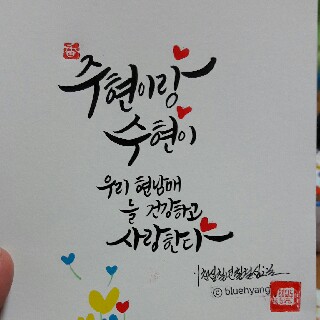 주현이랑
수현이
우리 현남매
늘 건강하고
사랑한다
ⓒ bluehyang